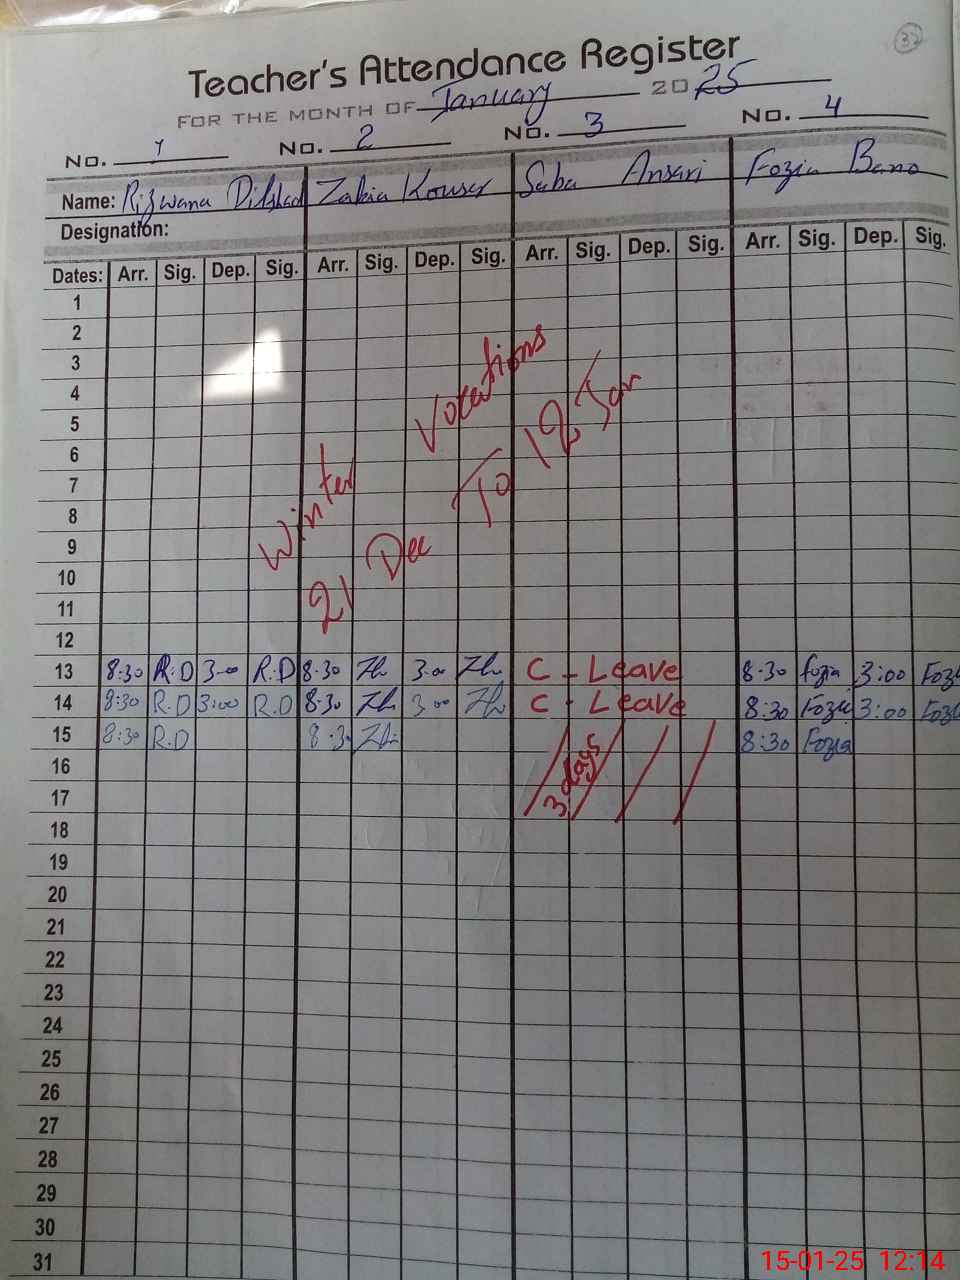 32
Teacher's Attendance Register
FOR THE MONTH OF January 2025
No. 1 No. 2 No. 3 No. 4
Name: Rizwana Dilshad Zakia Kouser Saba Ansari Fozia Bano
Designation:
Dates: Arr. Sig. Dep. Sig. Arr. Sig. Dep. Sig. Arr. Sig. Dep. Sig. Arr. Sig. Dep. Sig.
1
2
3
4
5
6
7
8
9
10
11
12
Winter Vocations
21 Dec To 12 Jan
13 8:30 R.D 3-00 R.D 8-30 3.00 C - Leave 8-30 fozia 3:00
14 8:30 R.D 3:00 R.D 8.30 3 00 C - Leave 8:30 Fozia 3:00
15 8:30 R.D 8.30 3 days 8:30 Fozia
16
17
18
19
20
21
22
23
24
25
26
27
28
29
30
31
15-01-25 12:14